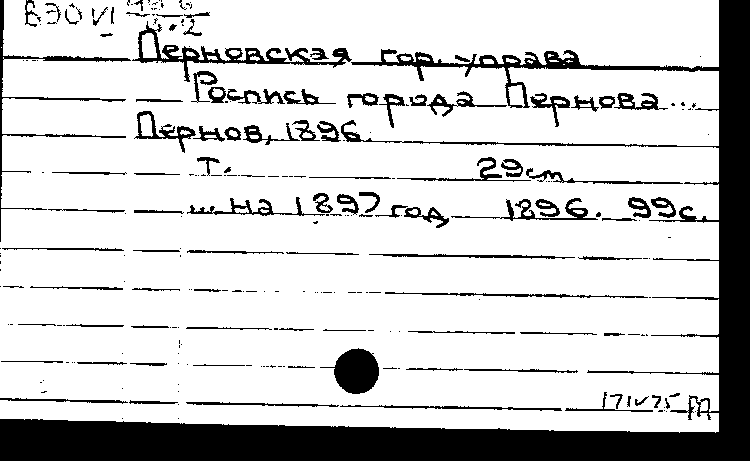 ВЭО VI
Перновская гор. управа
Роспись города Пернова...
Пернов, 1896.
Т. 29 см.
... на 1897 год 1896. 99 с.